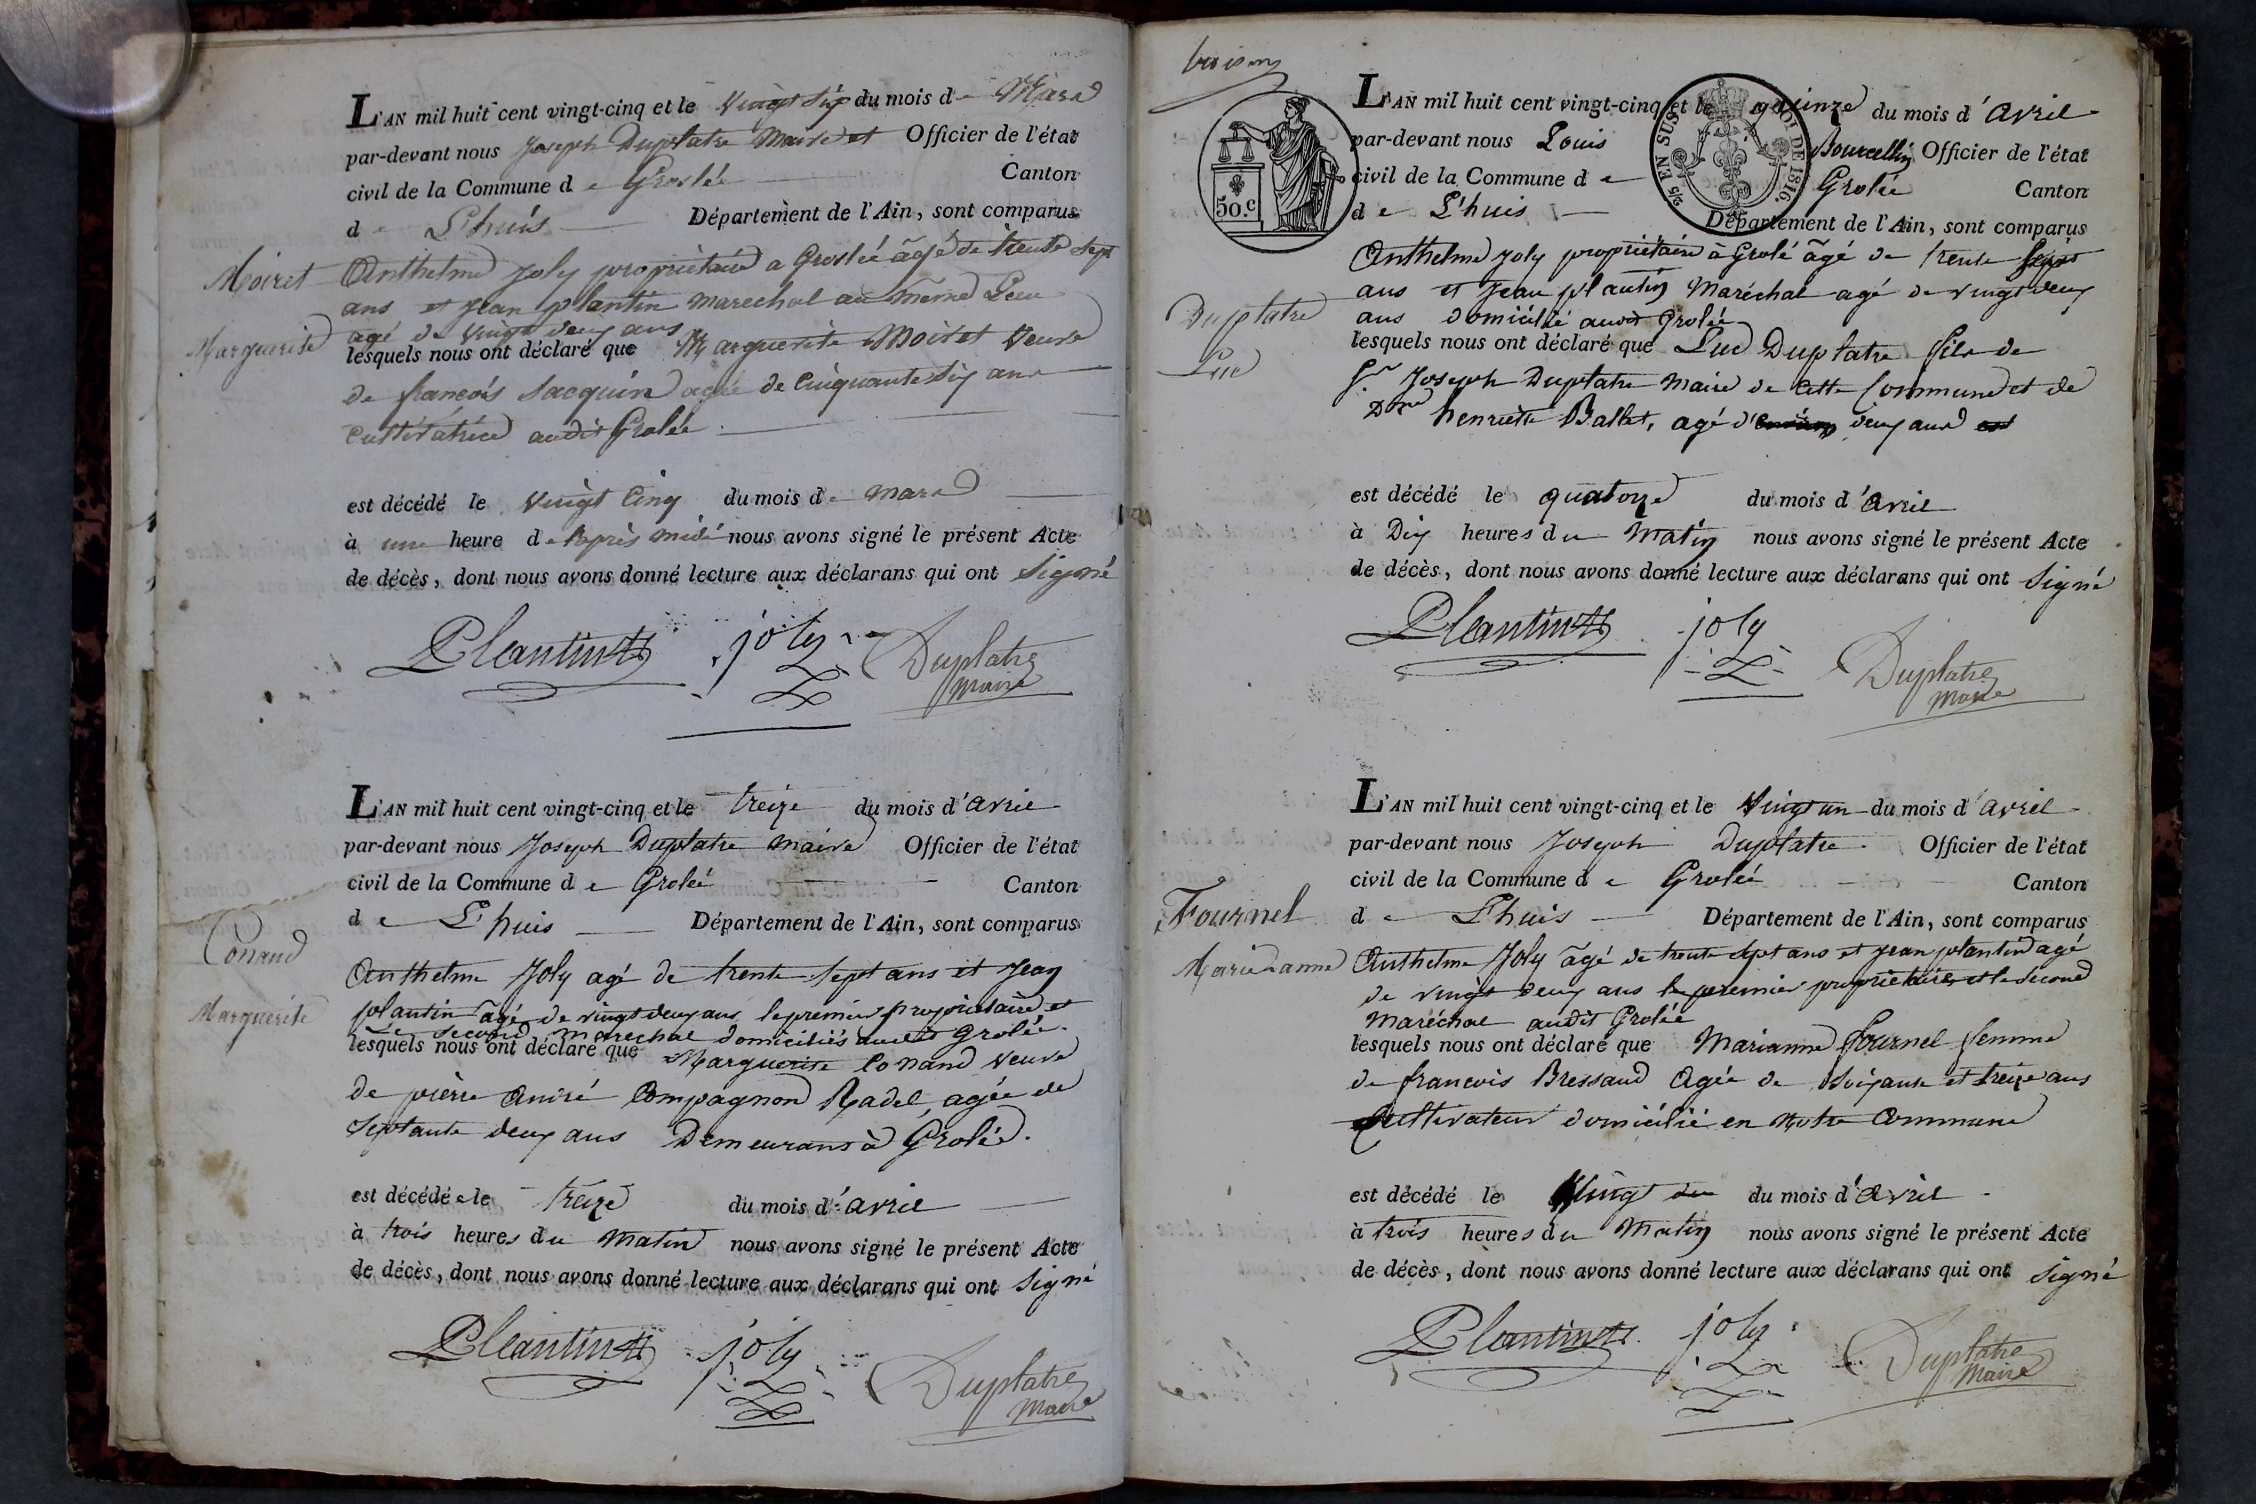 L'AN mil huit cent vingt-cinq et le vingt six du mois de Mars
par-devant nous Joseph Duplatre Maire et Officier de l'état
civil de la Commune de Groslée Canton
de L'huis Département de l'Ain, sont comparus
Moiret
Marguerite
Anthelme Joly propriétaire a Groslée âgé de trente sept
ans et Jean plantin marechal au même Lieu
agé de vingt deux ans
lesquels nous ont déclaré que Marguerite Moiret veuve
de francois Jacquin agée de Cinquante six ans
cultivatrice audit Grolée.
est décédé le vingt Cinq du mois de mars
à une heure de l'après midi nous avons signé le présent Acte
de décès, dont nous avons donné lecture aux déclarans qui ont signé
Plantin joly Duplatre
maire
L'AN mil huit cent vingt-cinq et le treize du mois d'avril
par-devant nous Joseph Duplatre maire Officier de l'état
civil de la Commune de Grolée Canton
de L'huis Département de l'Ain, sont comparus
Conand
Marguerite
Anthelme Joly agé de trente sept ans et Jean
plantin âgé de vingt deux ans le premier propriétaire et
Le second marechal domiciliés audit Grolée.
lesquels nous ont déclaré que Marguerite Conand veuve
de pierre André Compagnon Radel, agée de
Septante deux ans Demeurans à Grolée.
est décédée le treize du mois d'avril
à trois heures du matin nous avons signé le présent Acte
de décès, dont nous avons donné lecture aux déclarans qui ont signé
Plantin joly Duplatre
maire
50.c
5/2 EN SUS
LOI DE 1816.
L'AN mil huit cent vingt-cinq et le quinze du mois d'avril
par-devant nous Louis Bourcellin Officier de l'état
civil de la Commune de Grolée Canton
de L'huis Département de l'Ain, sont comparus
Duplatre
Luc
Anthelme Joly propriétaire à Grolé âgé de trente sept
ans et Jean plantin Maréchal agé de vingt deux
ans domicilié audit Grolée
lesquels nous ont déclaré que Luc Duplatre fils de
Sr Joseph Duplatre maire de cette Commune et de
Dme henriette Ballet, agé d'environ deux ans est
est décédé le quatorze du mois d'avril
à Dix heures du matin nous avons signé le présent Acte
de décès, dont nous avons donné lecture aux déclarans qui ont signé
Plantin joly Duplatre
maire
L'AN mil huit cent vingt-cinq et le vingt un du mois d'avril
par-devant nous Joseph Duplatre Officier de l'état
civil de la Commune de Grolée Canton
de L'huis Département de l'Ain, sont comparus
Fournel
Marie anne
Anthelme Joly âgé de trente sept ans et Jean plantin agé
de vingt deux ans le premier propriétaire et le second
Maréchal audit Grolée
lesquels nous ont déclaré que Marianne fournel femme
de francois Bressand Agée de soixante et treize ans
cultivateur domicilié en Notre Commune
est décédé le vingt du mois d'avril
à trois heures du matin nous avons signé le présent Acte
de décès, dont nous avons donné lecture aux déclarans qui ont signé
Plantin joly Duplatre
maire